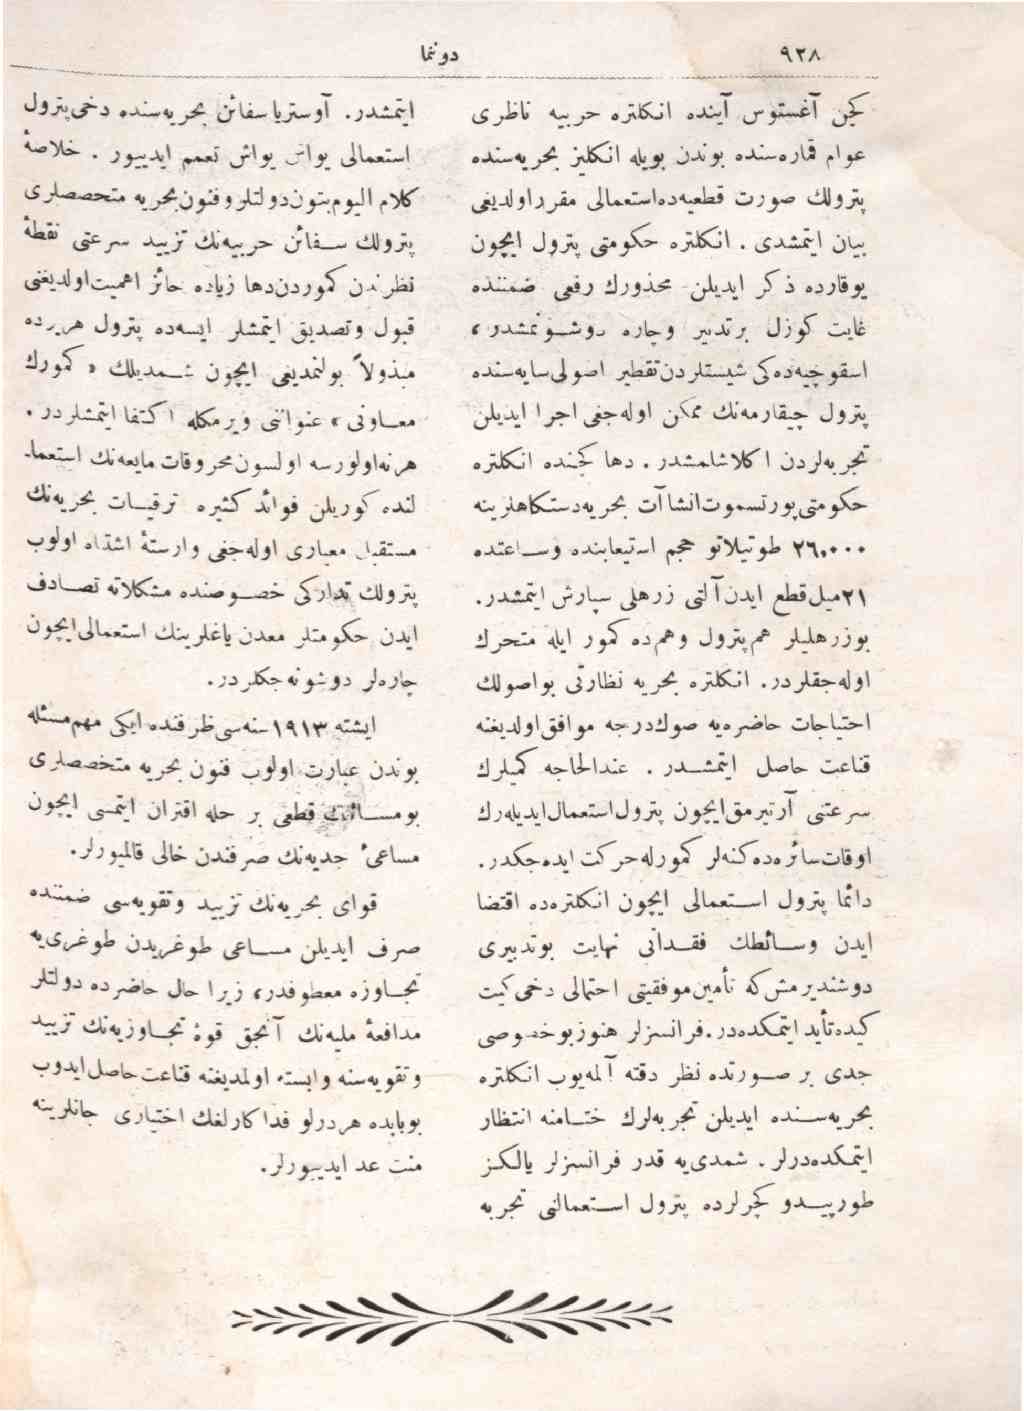 ٩٢٨
دوننما
كچن آغستوس آینده انكلتره حربیه ناظری
عوام قماره‌سنده بوندن بویله انكلیز بحریه‌سنده
پترولك صورت قطعیه‌ده استعمالی مقرر اولدیغی
بیان ایتمشدی . انكلتره حكومتی پترول ایچون
یوقارده ذكر ایدیلن محذورك رفعی ضمننده
غایت كوزل برتدبیر وچاره دوشونمشدر ،
اسقوچیه‌ده‌كی شیستلردن تقطیر اصولی سایه‌سنده
پترول چیقارمه‌نك ممكن اوله‌جغی اجرا ایدیلن
تجربه‌لردن اكلاشلمشدر . دها كچنده انكلتره
حكومتی پورتسموت انشاآت بحریه دستكاهلرینه
٢٦,٠٠٠ طونیلاتو حجم استیعابنده وساعتده
٢١ میل قطع ایدن آلتی زرهلی سپارش ایتمشدر.
بوزرهلیلر هم پترول وهم‌ده كمور ایله متحرك
اوله‌جقلردر. انكلتره بحریه نظارتی بواصولك
احتیاجات حاضره‌یه صوك درجه موافق اولدیغنه
قناعت حاصل ایتمشدر . عندالحاجه كمیلرك
سرعتنی آرتیرمق ایچون پترول استعمال ایدیله‌رك
اوقات سائره‌ده كنه‌لر كمورله حركت ایده‌جكدر.
دائما پترول استعمالی ایچون انكلتره‌ده اقتضا
ایدن وسائطك فقدانی نهایت بوتدبیری
دوشندیرمش‌كه تأمین موفقیتی احتمالی دخی كیت
كیده تأید ایتمكده‌در.فرانسزلر هنوز بوخصوصی
جدی بر صورتده نظر دقته آلمه‌یوب انكلتره
بحریه‌سنده ایدیلن تجربه‌لرك ختامنه انتظار
ایتمكده‌درلر . شمدی‌یه قدر فرانسزلر یالكز
طورپیدو كچرلرده پترول استعمالنی تجربه
ایتمشدر. آوستریا سفائن بحریه‌سنده دخی پترول
استعمالی یواش یواش تعمم ایدییور . خلاصهٔ
كلام الیوم بتون دولتلر و فنون بحریه متخصصلری
پترولك سفائن حربیه‌نك تزیید سرعتی نقطهٔ
نظرندن كموردن دها زیاده حائز اهمیت اولدیغنی
قبول وتصدیق ایتمشلر ایسه‌ده پترول هریرده
مبذولاً بولنمدیغی ایچون شمدیلك « كمورك
معاونی » عنواننی ویرمكله اكتفا ایتمشلردر .
هرنه اولورسه اولسون محروقات مایعه‌نك استعما-
لنده كوریلن فوائد كثیره ترقیات بحریه‌نك
مستقبل معیاری اوله‌جغی وارستهٔ اشتباه اولوب
پترولك تداركی خصوصنده مشكلاته تصادف
ایدن حكومتلر معدن یاغلرینك استعمالی ایچون
چاره‌لر دوشونه‌جكلردر.
ایشته ١٩١٣ سنه‌سی ظرفنده ایكی مهم مسئله
بوندن عبارت اولوب فنون بحریه متخصصلری
بومسائلك قطعی بر حله اقتران ایتمسی ایچون
مساعیٔ جدیه‌نك صرفندن خالی قالمیورلر.
قوای بحریه‌نك تزیید وتقویه‌سی ضمننده
صرف ایدیلن مساعی طوغریدن طوغری‌یه
تجاوزه معطوفدر، زیرا حال حاضرده دولتلر
مدافعهٔ ملیه‌نك آنجق قوهٔ تجاوزیه‌نك تزیید
وتقویه‌سنه وابسته اولمدیغنه قناعت حاصل ایدوب
بوبابده هردرلو فداكارلغك اختیاری جانلرینه
منت عد ایدییورلر.